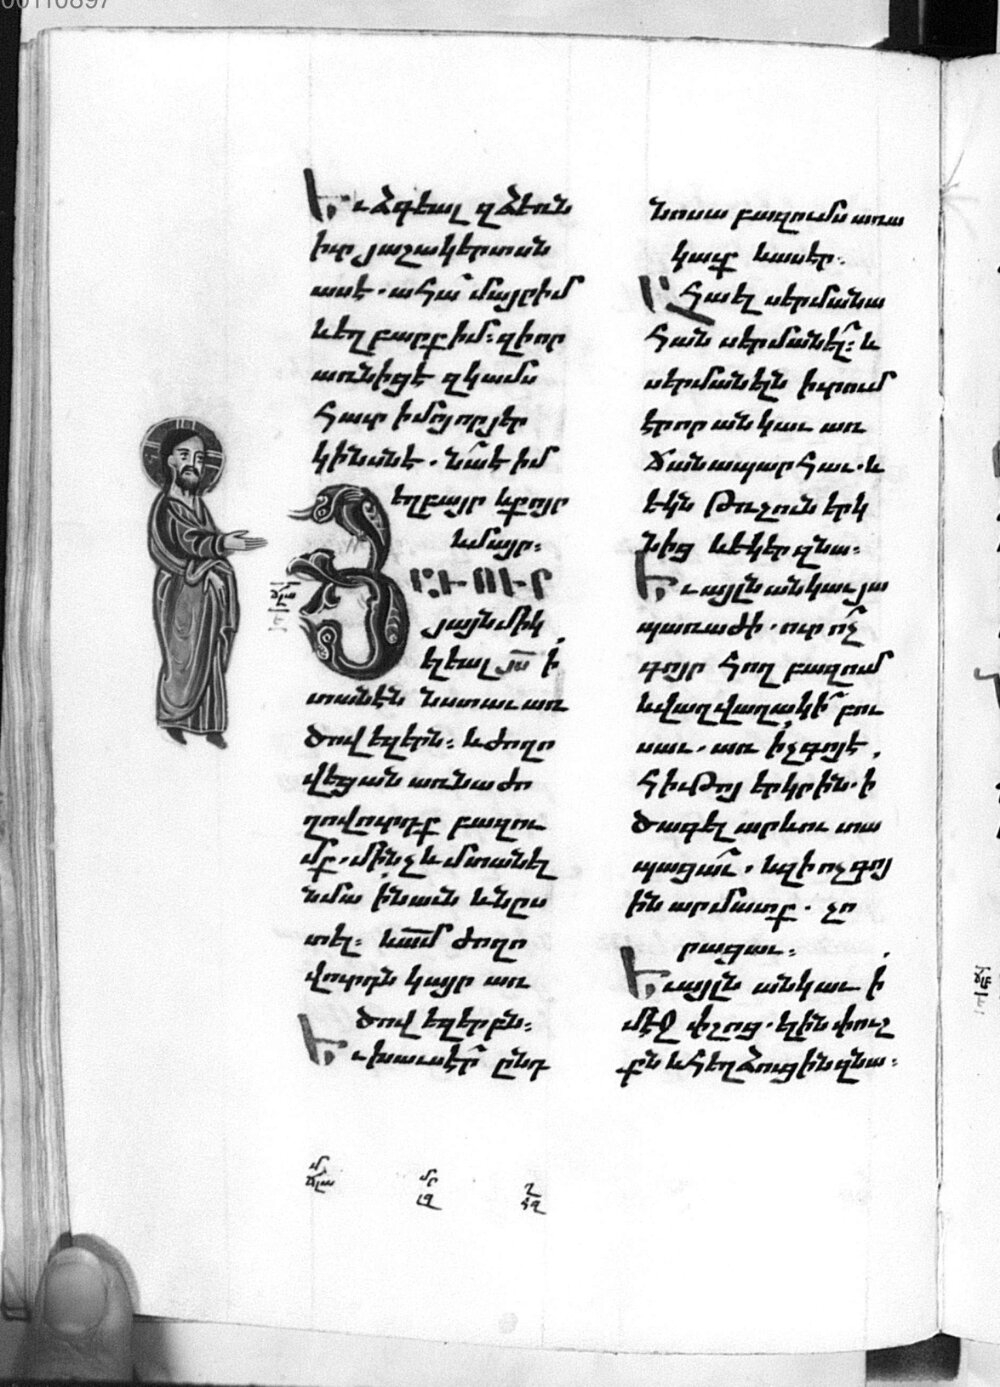 00110897
Եւ ձգեալ զձեռն
իւր յաշակերտսն
ասէ. ահա մայր իմ
և եղբարք իմ: զի որ
առնիցէ զկամս
հաւր իմոյ որ յեր
կինսն է. նա է իմ
եղբայր և քոյր
և մայր:
ՅԱՒՈՒՐ
յայնմիկ
ելեալ յս ի
տանէն նստաւ առ
ծովեզերն: և ժողո
վեցան առ նա ժո
ղովուրդք բազու
մք. մինչև մտանել
նմա ի նաւն և նըս
տել: և ամ ժողո
վուրդն կայր առ
ծովեզերբն:
Եւ խաւսէր ընդ
նոսա բազում առա
կաւք և ասէր.
Ահա ել սերմանա
հան սերմանել: և
սերմանելն իւրում
է որ որ անկաւ առ
ճանապարհաւ. և
եկն թռչուն երկ
նից և եկեր զնա:
Եւ այլն անկաւ յա
պառաժի. ուր ոչ
գոյր հող բազում
և վաղվաղակի բու
սաւ. առ ի չգոյէ
հիւթոյ երկրին. ի
ծագել արևու տա
պացաւ. և զի ոչ գոյ
ին արմատք. չո
րացաւ:
Եւ այլն անկաւ ի
մէջ փշոց. ելին փուշ
քն և հեղձուցին զնա: